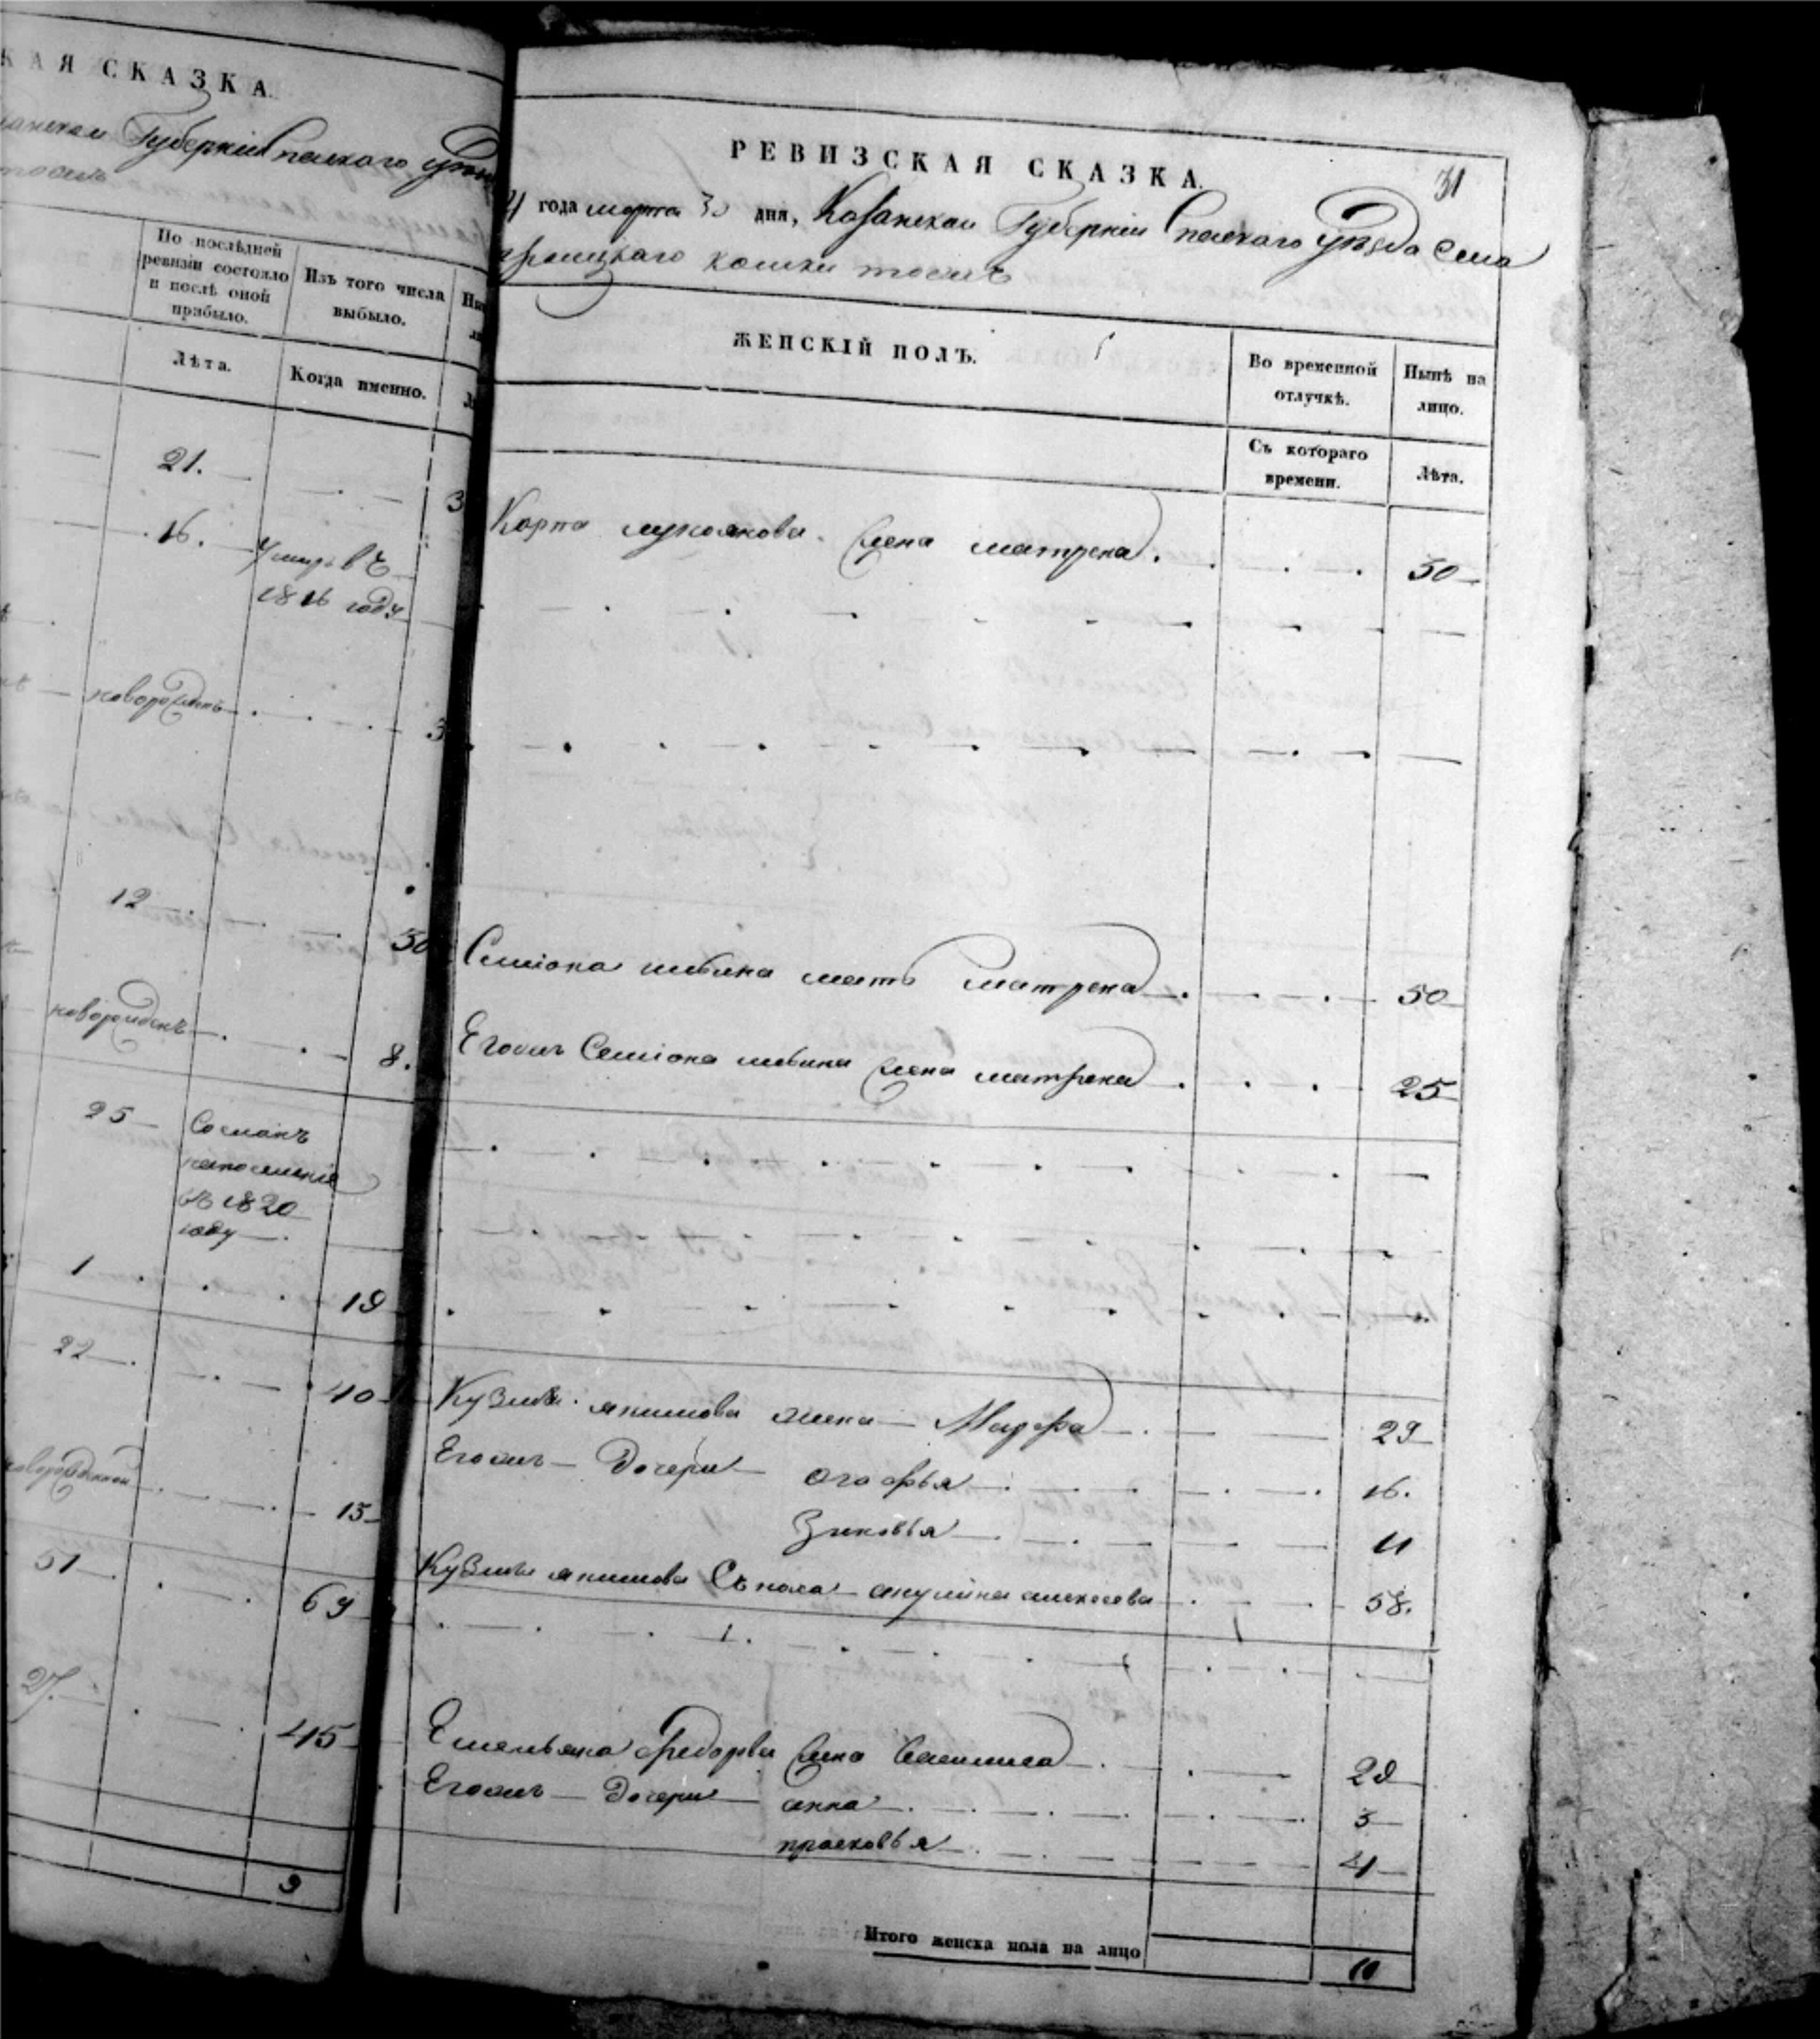 КАЯ СКАЗКА.
Губерніи Спаскаго уѣзда
По послѣдней
ревизіи состояло
и послѣ оной
прибыло.
Изъ того числа
выбыло.
Лѣта.
Когда именно.
21.
16.
умиръ вЪ
1816 году
новорожденъ
3
12
50
новорожденъ
8.
25
Сосланъ
на поселеніе
въ 1820
году
1
19
22
40
новорожденной
15
51
69
27.
45
9
РЕВИЗСКАЯ СКАЗКА.
31
4 года марта 30 дня, Казанскаи Губерніи Спаскаго уѣзда Села
троицкаго тожъ
ЖЕНСКІЙ ПОЛЪ.
Во временной
отлучкѣ.
Нынѣ на
лицо.
Съ котораго
времени.
Лѣта.
Карпа лукоянова жена матрена. 50
Симіона мать матрена 50
Егожъ Семіона жена матрена 25
Кузмы якимова жена Марфа 29
Егожъ дочери огофья 16.
Зиновья 11
Кузмы якимова акулина алексеева 58.
Емельяна федорва жена Василиса 29
Егожъ дочери анна 5
прасковья 4
Итого женска пола на лицо
10